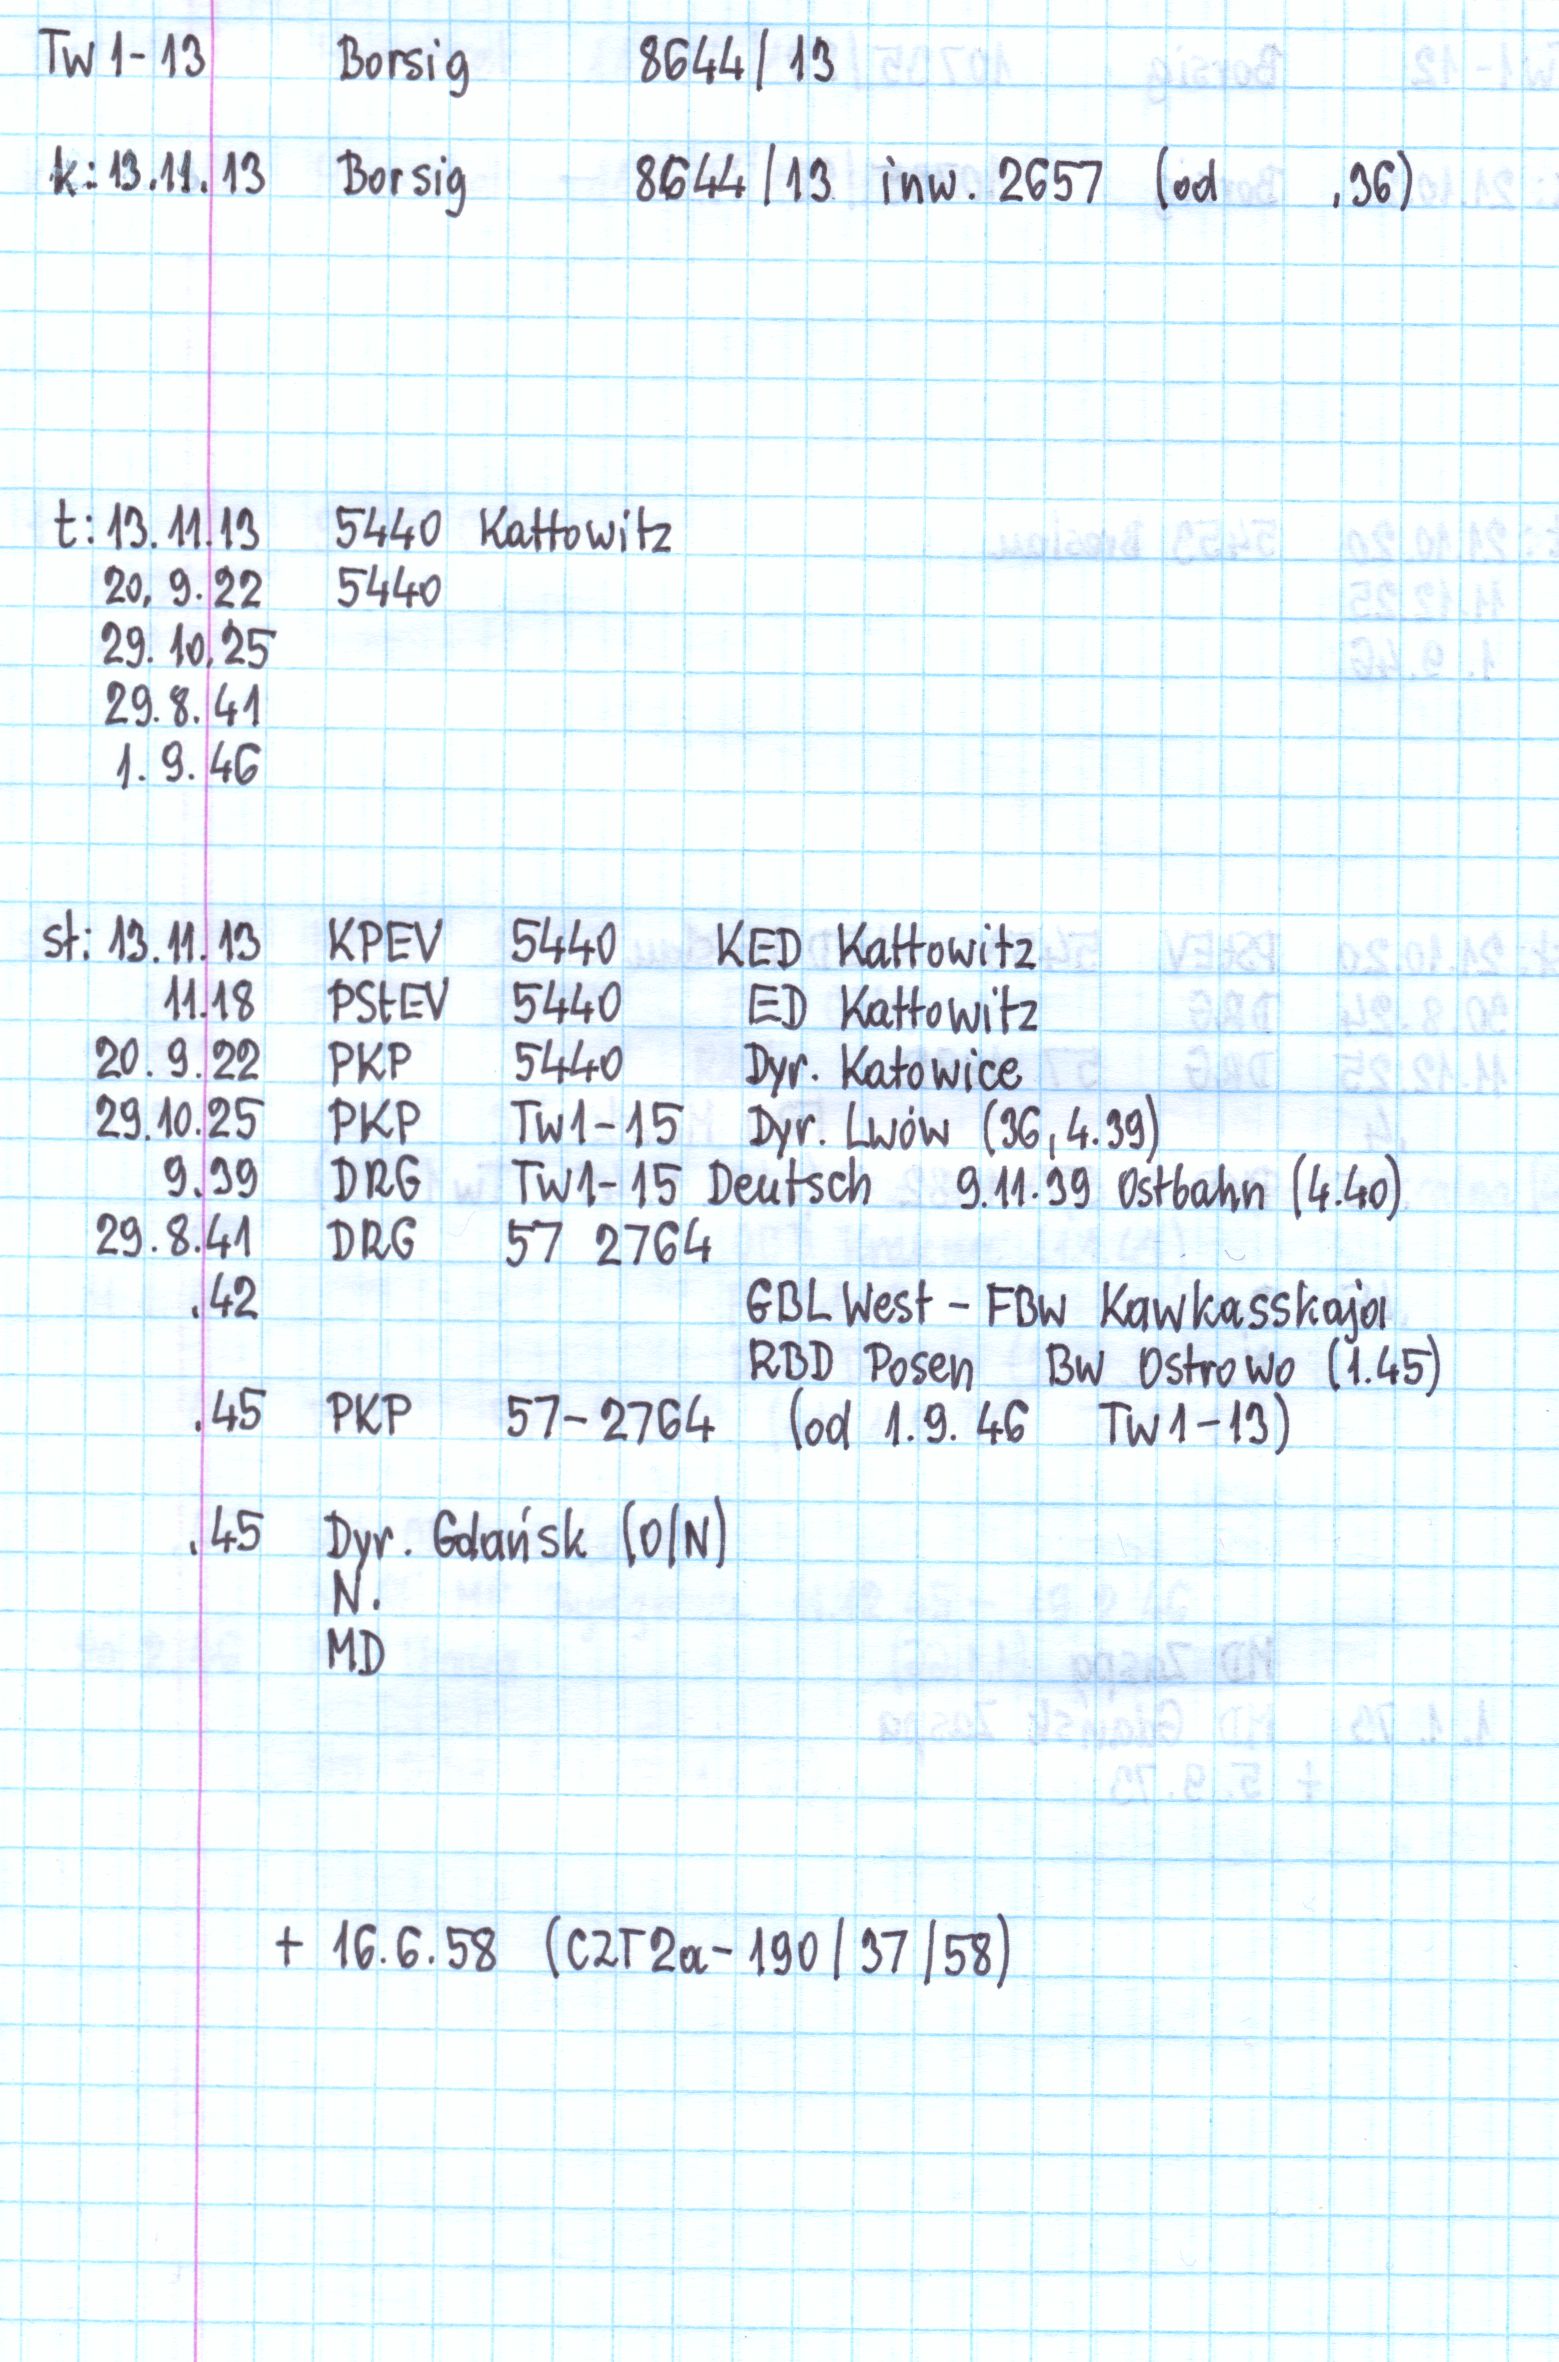 Tw1-13 Borsig 8644/13
k: 13.11.13 Borsig 8644/13 inw. 2657 (od .36)
t: 13.11.13 5440 Kattowitz
20.9.22 5440
29.10.25
29.8.41
1.9.46
st: 13.11.13 KPEV 5440 KED Kattowitz
11.18 PStEV 5440 ED Kattowitz
20.9.22 PKP 5440 Dyr. Katowice
29.10.25 PKP Tw1-15 Dyr. Lwów (36, 4.39)
9.39 DRG Tw1-15 Deutsch 9.11.39 Ostbahn (4.40)
29.8.41 DRG 57 2764
.42 GBL West - FBw Kawkasskaja
RBD Posen Bw Ostrowo (1.45)
.45 PKP 57-2764 (od 1.9.46 Tw1-13)
.45 Dyr. Gdańsk (O/N)
N.
MD
+ 16.6.58 (CZT2a-190/37/58)